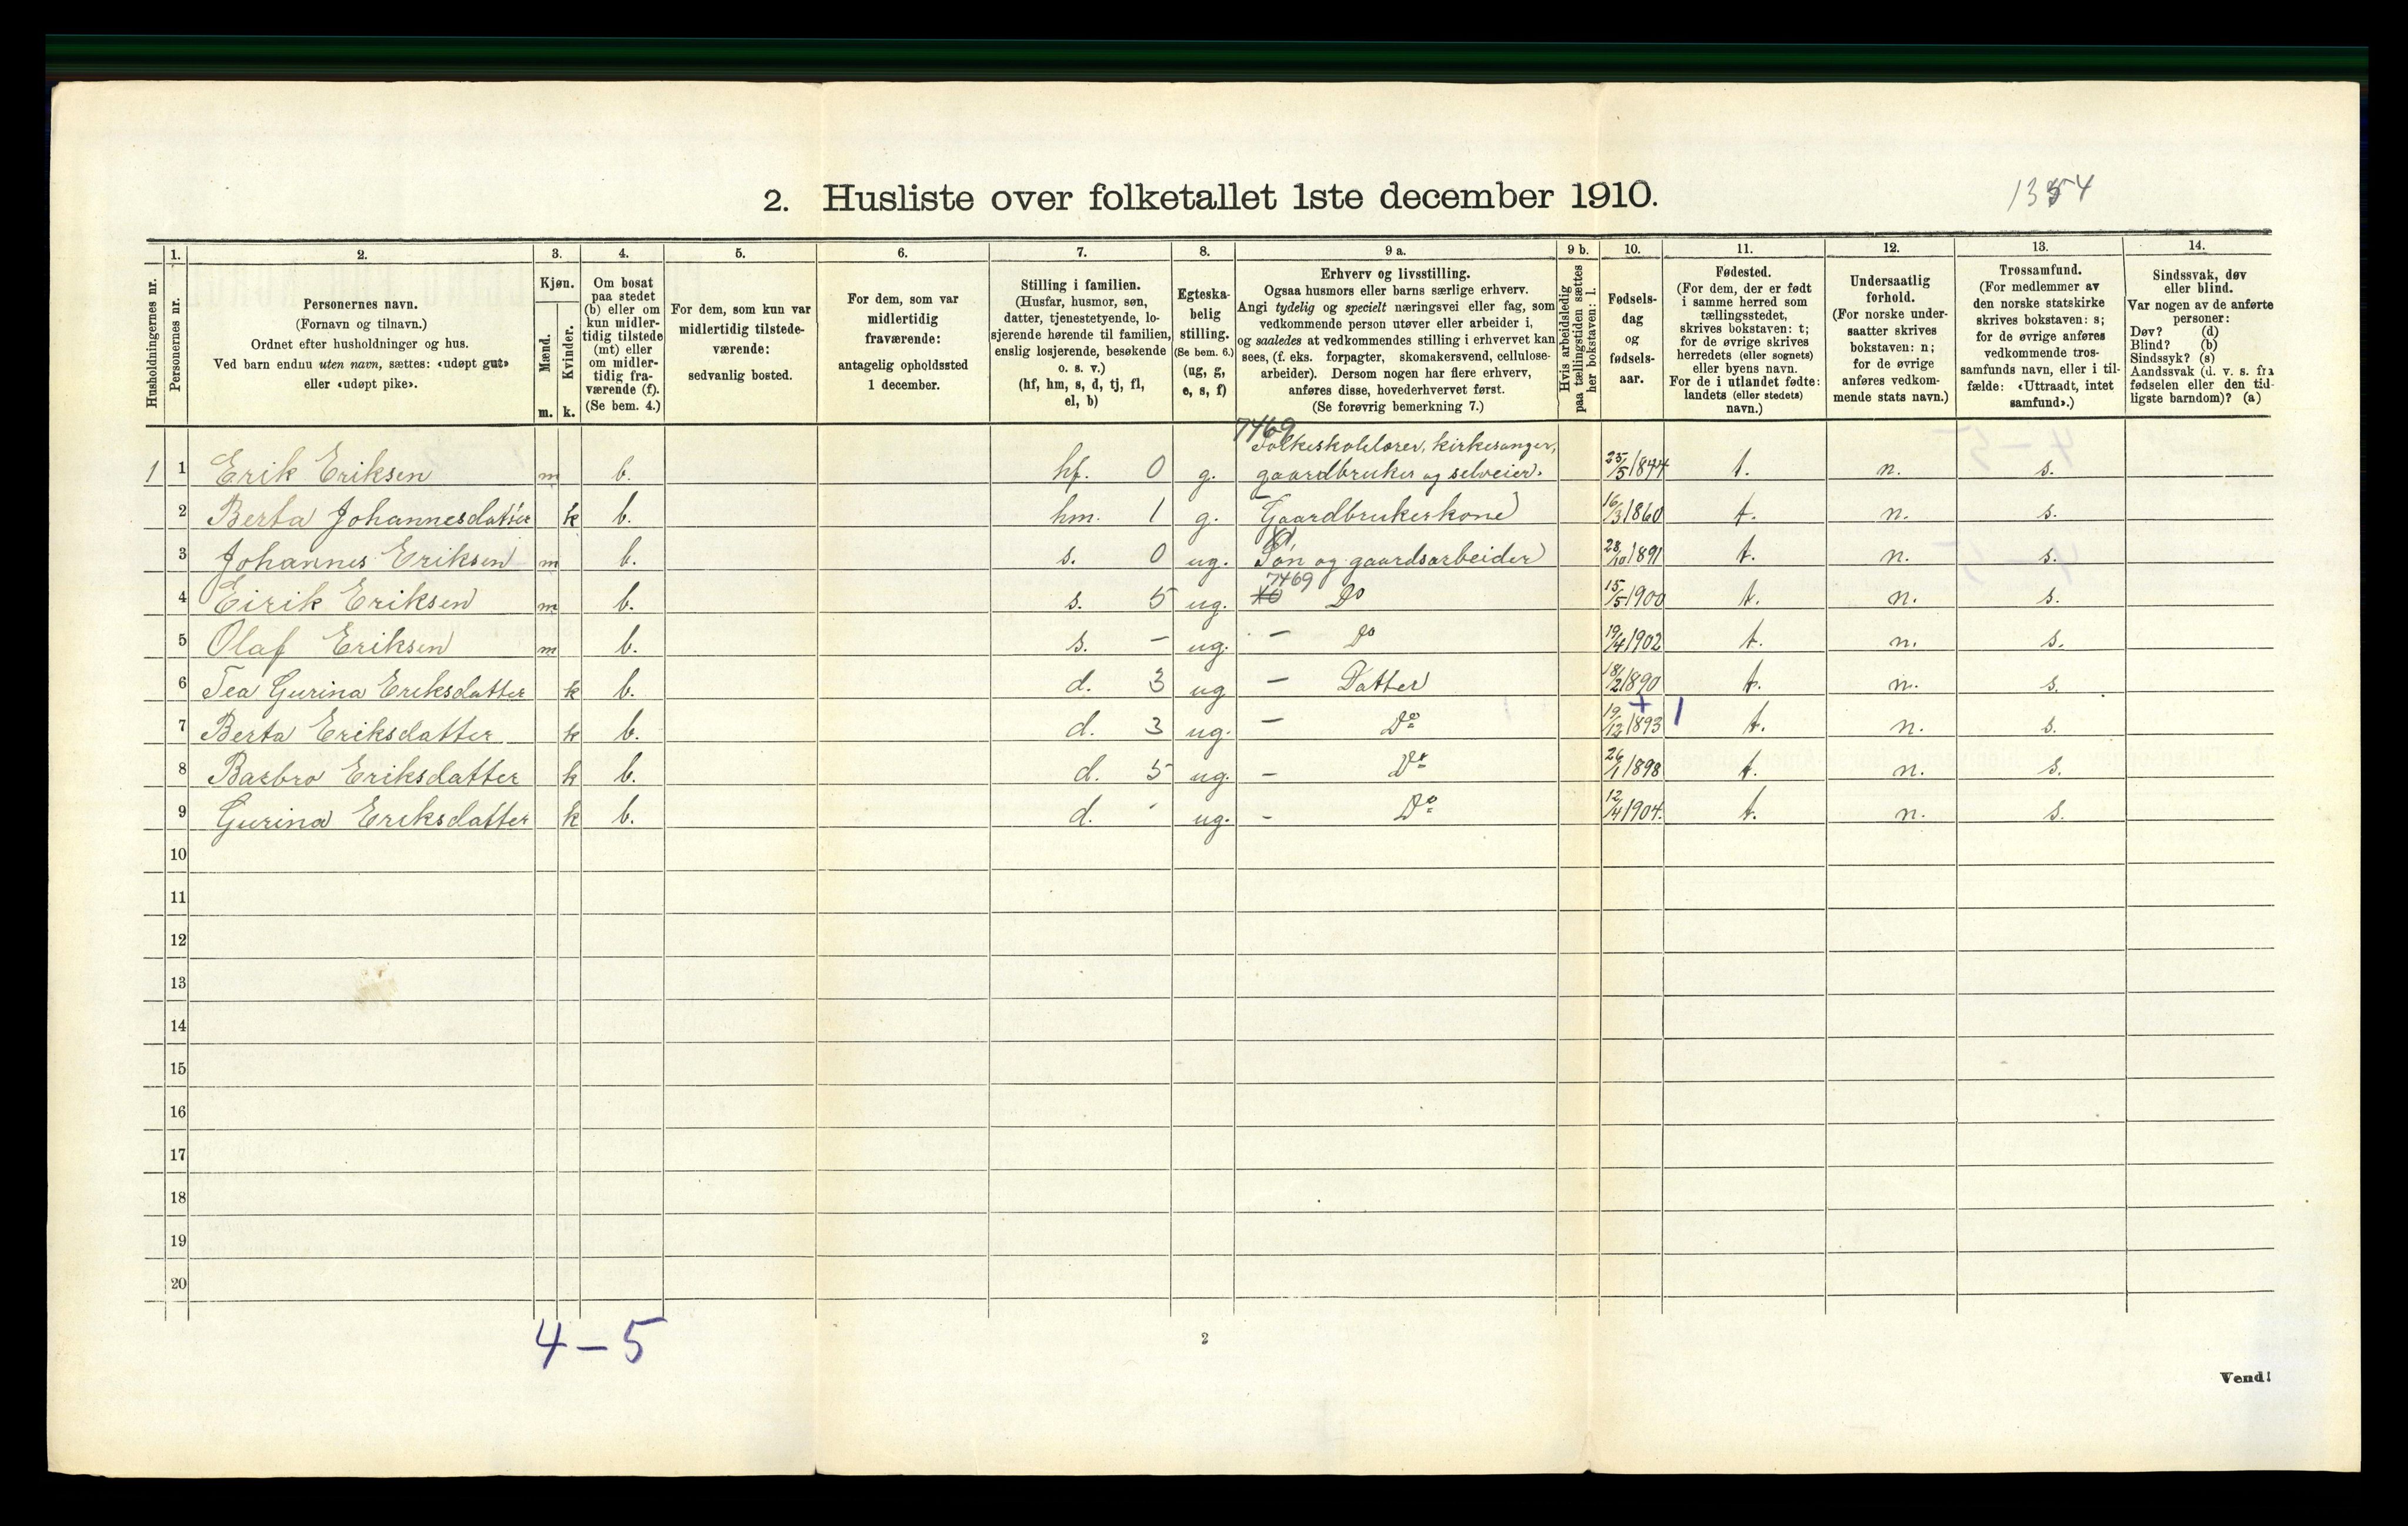 2. Husliste over folketallet 1ste december 1910.
1354
1. 2. 3. 4. 5. 6. 7. 8. 9 a. 9 b. 10. 11. 12. 13. 14.
Husholdningernes nr.
Personernes nr.
Personernes navn.
(Fornavn og tilnavn.)
Ordnet efter husholdninger og hus.
Ved barn endnu uten navn, sættes: «udøpt gut»
eller «udøpt pike».
Kjøn.
Mænd.
Kvinder.
m. k.
Om bosat
paa stedet
(b) eller om
kun midler-
tidig tilstede
(mt) eller
om midler-
tidig fra-
værende (f).
(Se bem. 4.)
For dem, som kun var
midlertidig tilstede-
værende:
sedvanlig bosted.
For dem, som var
midlertidig
fraværende:
antagelig opholdssted
1 december.
Stilling i familien.
(Husfar, husmor, søn,
datter, tjenestetyende, lo-
sjerende hørende til familien,
enslig losjerende, besøkende
o. s. v.)
(hf, hm, s, d, tj, fl,
el, b)
Egteska-
belig
stilling.
(Se bem. 6.)
(ug, g,
e, s, f)
Erhverv og livsstilling.
Ogsaa husmors eller barns særlige erhverv.
Angi tydelig og specielt næringsvei eller fag, som
vedkommende person utøver eller arbeider i,
og saaledes at vedkommendes stilling i erhvervet kan
sees, (f. eks. forpagter, skomakersvend, cellulose-
arbeider). Dersom nogen har flere erhverv,
anføres disse, hovederhvervet først.
(Se forøvrig bemerkning 7.)
Hvis arbeidsledig
paa tællingstiden sættes
her bokstaven: l.
Fødsels-
dag
og
fødsels-
aar.
Fødested.
(For dem, der er født
i samme herred som
tællingsstedet,
skrives bokstaven: t;
for de øvrige skrives
herredets (eller sognets)
eller byens navn.
For de i utlandet fødte:
landets (eller stedets)
navn.)
Undersaatlig
forhold.
(For norske under-
saatter skrives
bokstaven: n;
for de øvrige
anføres vedkom-
mende stats navn.)
Trossamfund.
(For medlemmer av
den norske statskirke
skrives bokstaven: s;
for de øvrige anføres
vedkommende tros-
samfunds navn, eller i til-
fælde: «Uttraadt, intet
samfund».)
Sindssvak, døv
eller blind.
Var nogen av de anførte
personer:
Døv? (d)
Blind? (b)
Sindssyk? (s)
Aandssvak (d. v. s. fra
fødselen eller den tid-
ligste barndom)? (a)
7469
Folkeskolelærer, kirkesanger,
1 1 Erik Eriksen m b. hf. 0 g. gaardbruker og selveier. 25/5 1844 t. n. s.
2 Berta Johannesdatter k b. hm. 1 g. Gaardbrukerkone 16/3 1860 t. n. s.
3 Johannes Eriksen m b. s. 0 ug. Søn og gaardsarbeider 28/10 1891 t. n. s.
7469
4 Eirik Eriksen m b. s. 5 ug. Do 15/5 1900 t. n. s.
5 Olaf Eriksen m b. s. - ug. - Do 19/4 1902 t. n. s.
6 Tea Gurina Eriksdatter k b. d. 3 ug - Datter 18/2 1890 t. n. s.
7 Berta Eriksdatter k b. d. 3 ug. - Do 19/12 1893 + 1 t. n. s.
8 Barbro Eriksdatter k b. d. 5 ug. - Do 26/1 1898 t. n. s.
9 Gurina Eriksdatter k b. d. - ug. - Do 12/4 1904. t. n. s.
10
11
12
13
14
15
16
17
18
19
20
4-5
2
Vend!